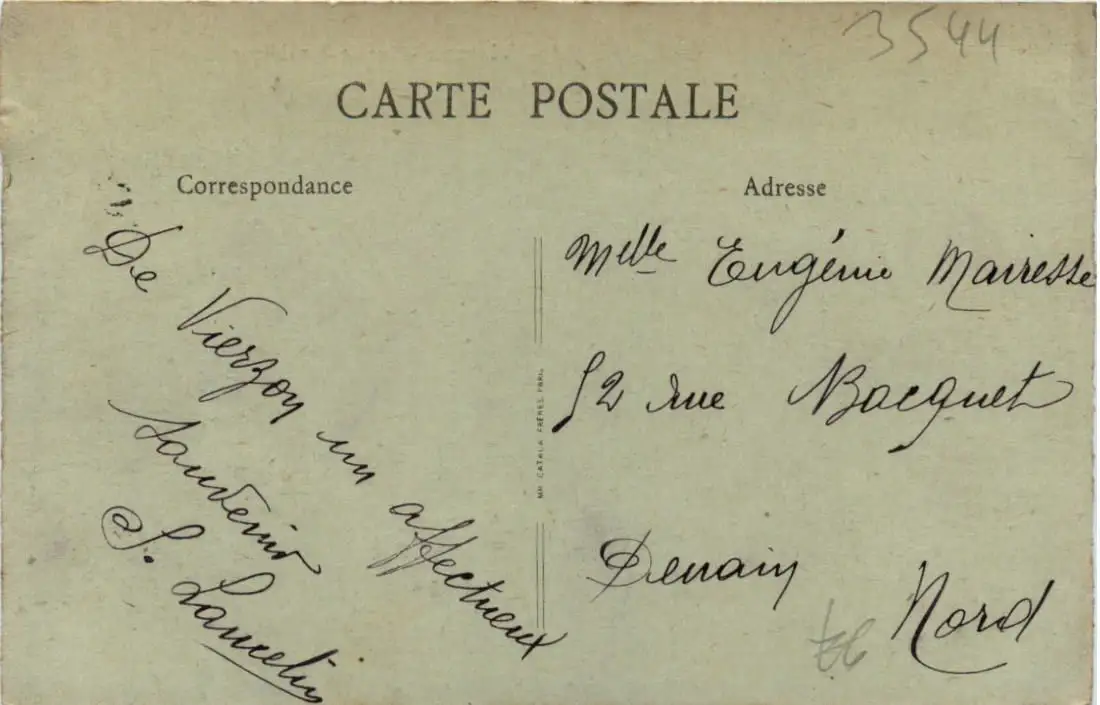 3544
CARTE POSTALE
Correspondance
De Vierzon un affectueux
souvenir
S. Lancelin
Adresse
Melle Eugénie Mairesse
52 rue Bacquet
Denain
Nord
CATALA FRÈRES PARIS